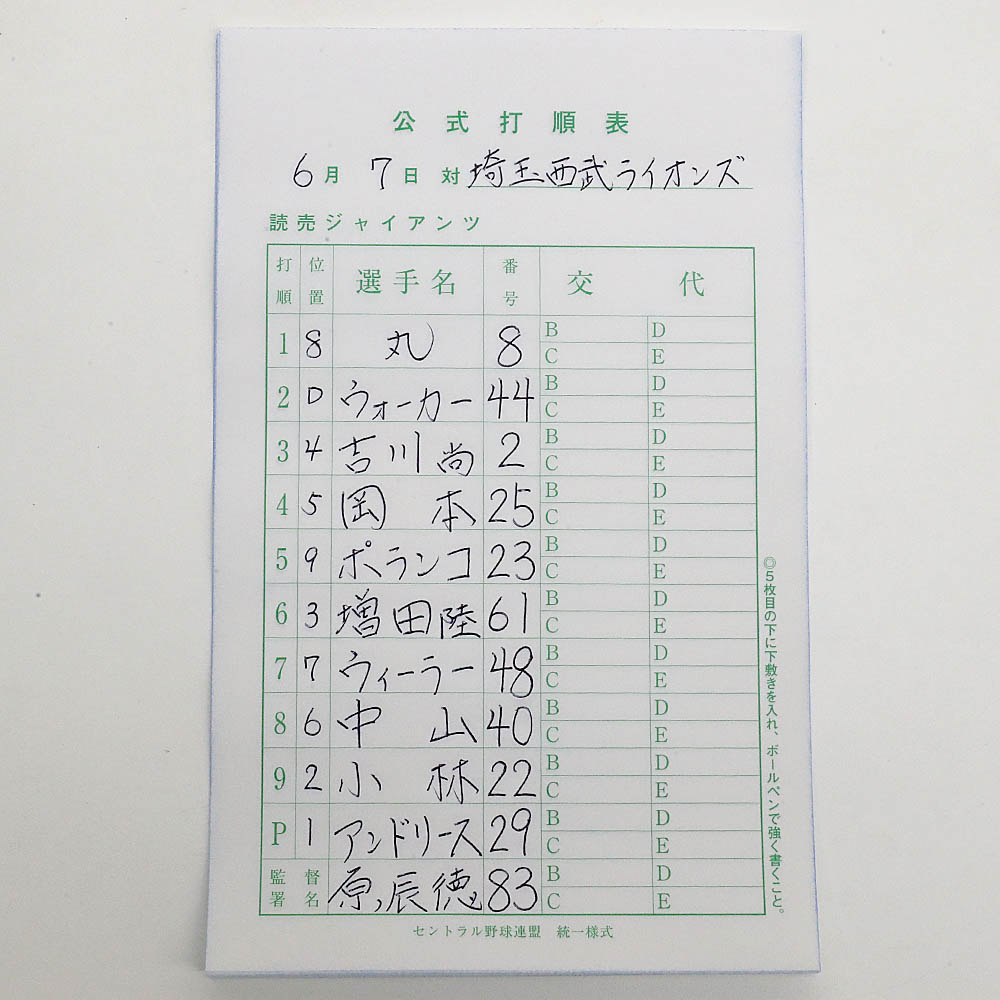 公式打順表
6月7日 対 埼玉西武ライオンズ
読売ジャイアンツ
打順 位置 選手名 番号 交代
1 8 丸 8 B D
C E
2 D ウォーカー 44 B D
C E
3 4 吉川尚 2 B D
C E
4 5 岡本 25 B D
C E
5 9 ポランコ 23 B D
C E
6 3 増田陸 61 B D
C E
7 7 ウィーラー 48 B D
C E
8 6 中山 40 B D
C E
9 2 小林 22 B D
C E
P 1 アンドリース 29 B D
C E
監督署名 原辰徳 83 B D
C E
◎5枚目の下に下敷きを入れ、ボールペンで強く書くこと。
セントラル野球連盟 統一様式